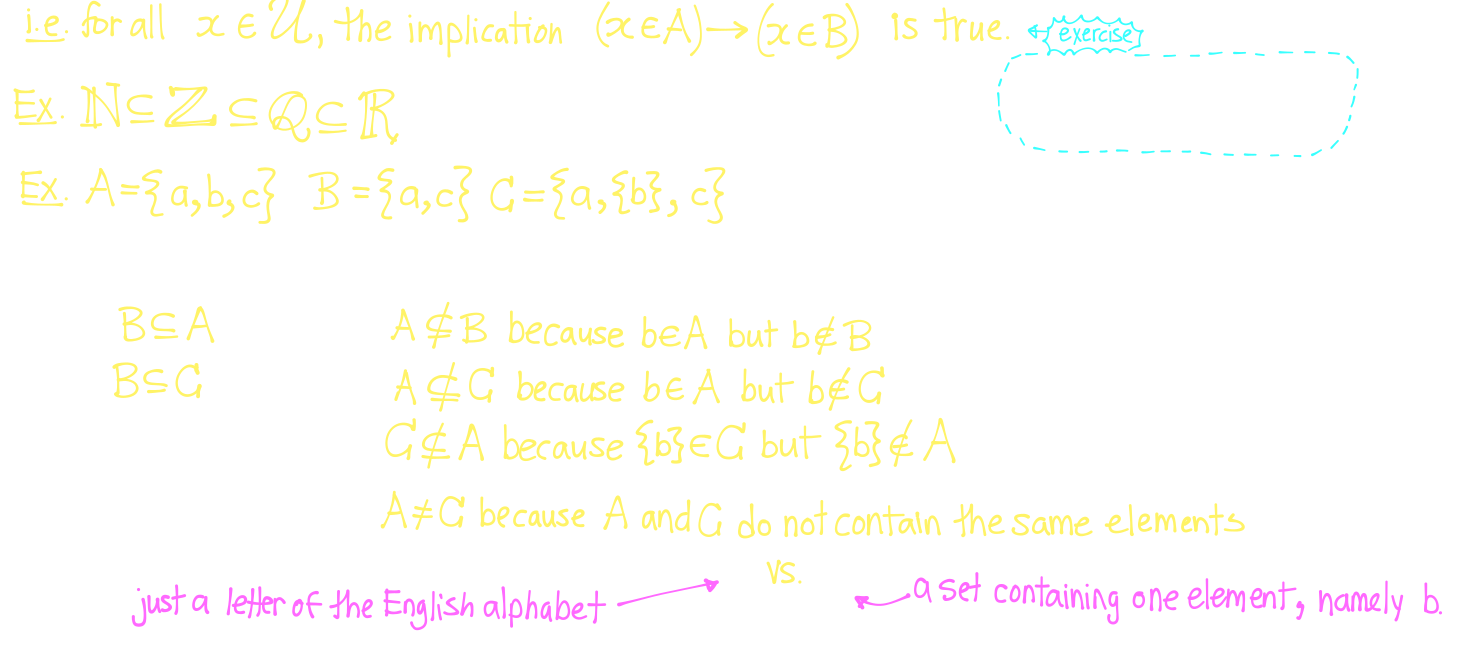 i.e. for all x ∈ U, the implication (x∈A)→(x∈B) is true. ← exercise
Ex. ℕ⊆ℤ⊆ℚ⊆ℝ
Ex. A={a,b,c} B={a,c} C={a,{b},c}
B⊆A A⊈B because b∈A but b∉B
B⊆C A⊈C because b∈A but b∉C
C⊈A because {b}∈C but {b}∉A
A≠C because A and C do not contain the same elements
vs.
just a letter of the English alphabet → ← a set containing one element, namely b.